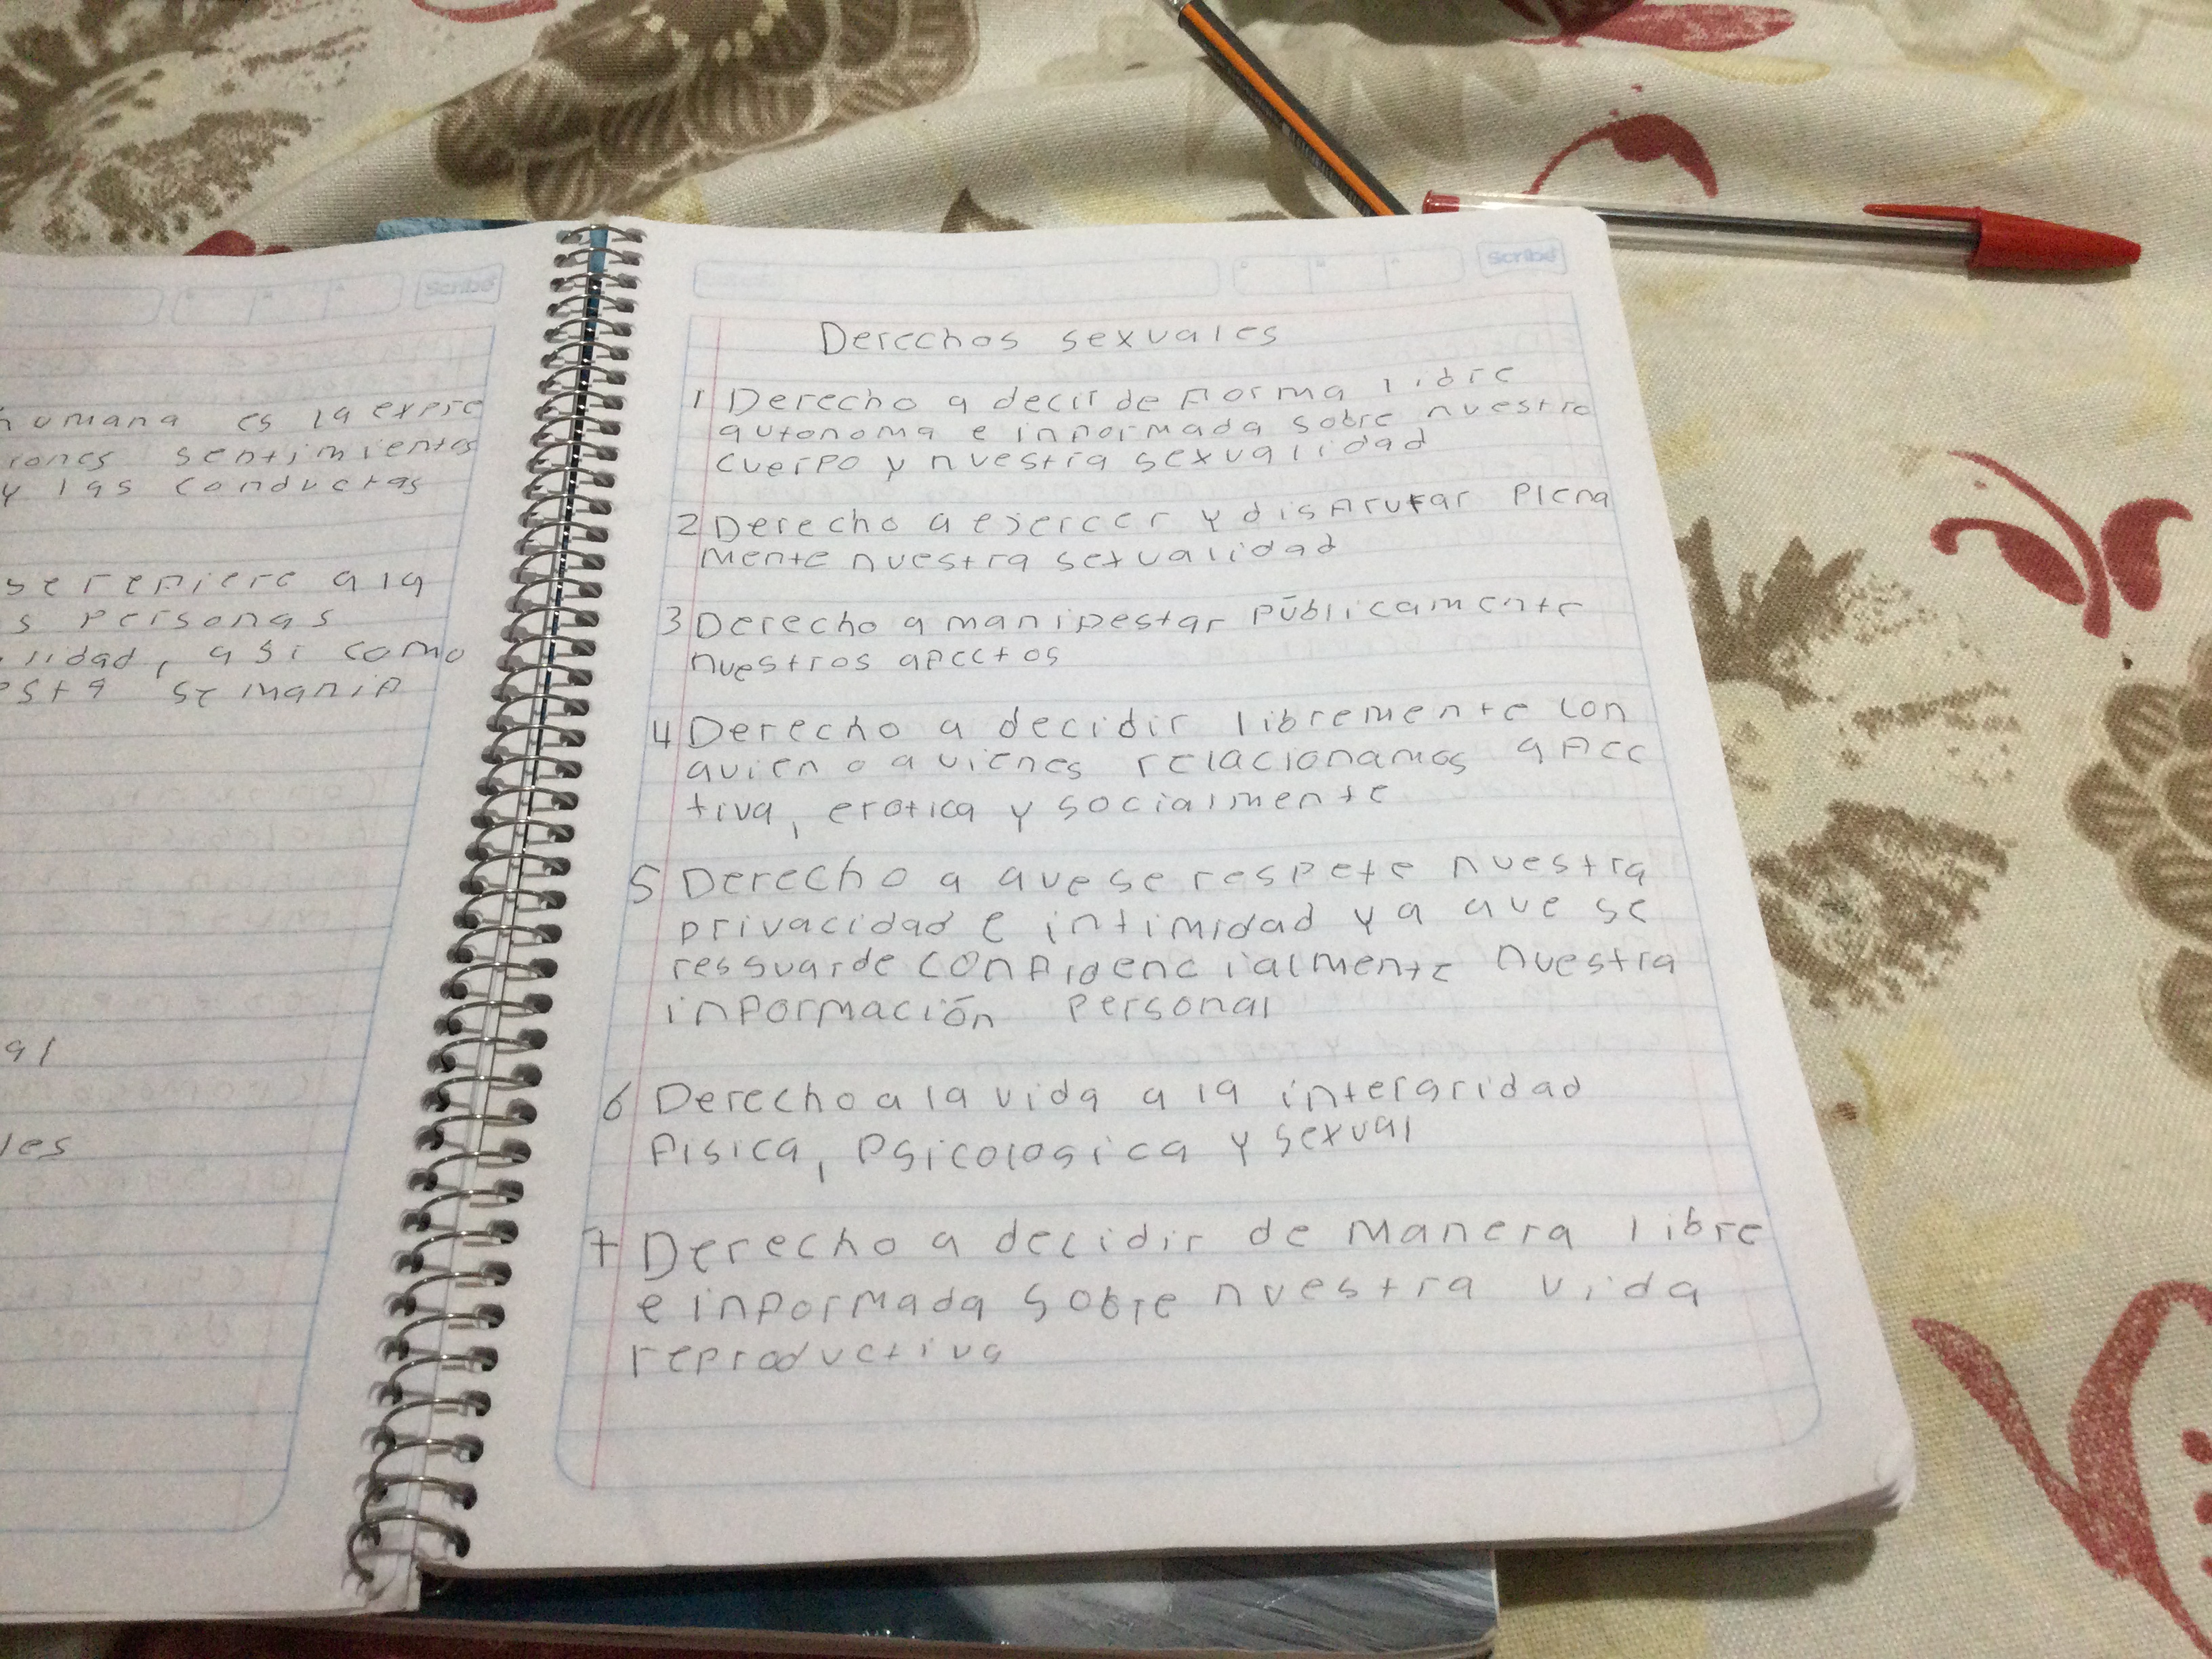 Scribe
humana es la expre
iones sentimientos
y las conductas
se refiere a la
s personas
lidad, asi como
esta se manif
al
les
Scribe
Derechos sexuales
1 Derecho a decir de forma libre
autonoma e informada sobre nuestro
cuerpo y nuestra sexualidad
2 Derecho a ejercer y disfrutar plena
mente nuestra sexualidad
3 Derecho a manifestar públicamente
nuestros afectos
4 Derecho a decidir libremente con
quien o quienes relacionamos afec
tiva, erotica y socialmente
5 Derecho a que se respete nuestra
privacidad e intimidad y a que se
resguarde confidencialmente nuestra
información personal
6 Derecho a la vida a la intergridad
fisica, psicologica y sexual
7 Derecho a decidir de manera libre
e informada sobre nuestra vida
reproductiva